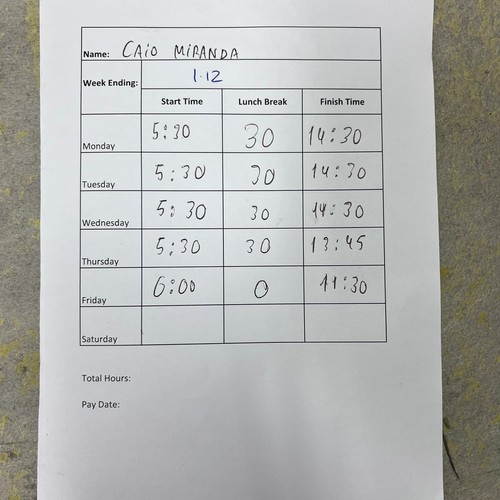 Name: CAiO MiRANDA
Week Ending: 1.12
Start Time Lunch Break Finish Time
Monday 5:30 30 14:30
Tuesday 5:30 30 14:30
Wednesday 5:30 30 14:30
Thursday 5:30 30 13:45
Friday 6:00 0 11:30
Saturday
Total Hours:
Pay Date: